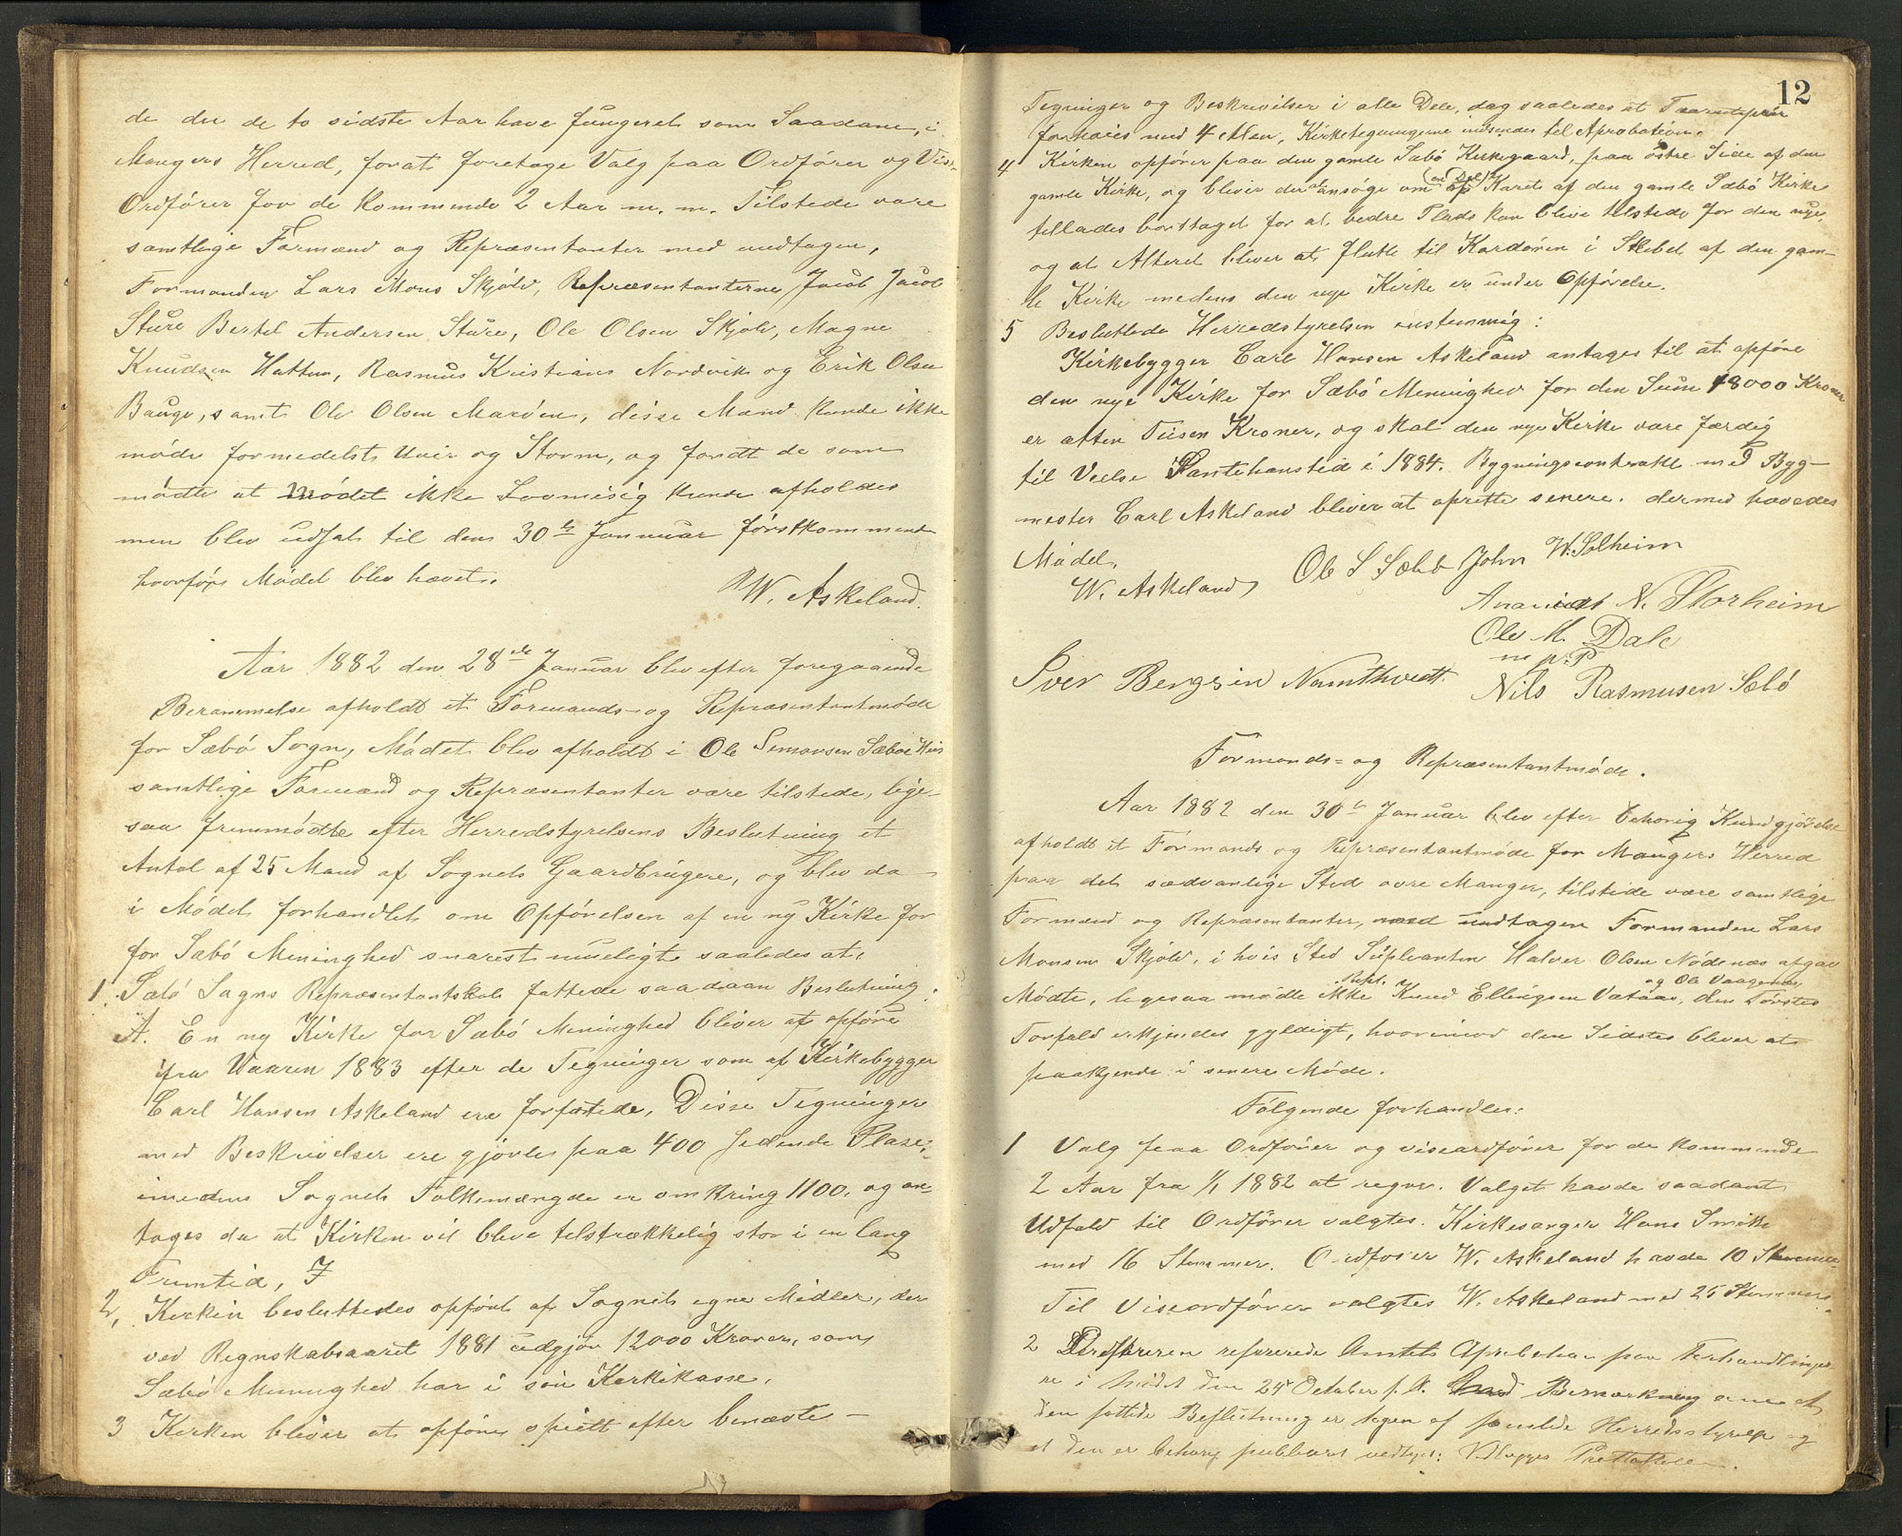 de der de to sidste Aar have fungeret som Saadane, i
Mangers Herred, forat foretage Valg paa Ordfører og Vise-
Ordfører for de kommende 2 Aar m. m. Tilstede vare
samtlige Formænd og Repræsentanter med undtagen,
Formanden Lars Mons Skjølv, Repræsentanterne Jacob Jacob
Sture Bertel Andersen Sture, Ole Olsen Skjolv, Magne
Knudsen Hatten, Rasmus Kristians Nordvik og Erik Olsen
Bauge, samt Ole Olsen Marøen, disse Mænd kunde ikke
møde formedelst Uveir og Storm, og fandt de som
mødte at Mødet ikke Lovmesig kunde afholdes
men blev udsat til den 30te Januar førstkommende
hvorføre Mødet blev hævet.
W. Askeland.
Aar 1882 den 28de Januar blev efter foregaaende
Berammelse afholdt et Formands- og Repræsentantmøde
for Sæbø Sogn, Mødet blev afholdt i Ole Simonsen Sæbøs Huus
samtlige Formænd og Repræsentanter vare tilstede, lige-
saa fremmødte efter Herredstyrelsens Beslutning et
Antal af 25 Mand af Sognets Gaardbrugere, og blev da
i Mødet forhandlet om Opførelsen af en ny Kirke for
for Sæbø Meninghed snarest mueligt saaledes at,
1. Sæbø Sogns Repræsentantskab fattede saadan Beslutning:
A. En ny Kirke for Sæbø Meninghed bliver at opføre
ifra Vaaren 1883 efter de Tegninger som af Kirkebygger
Carl Hansen Askeland ere forfattede, Disse Tegninger
med Beskrivelser ere gjorte paa 400 sidende Plase,
imedens Sognets Folkemængde er omkring 1100, og an-
tages da at Kirken vil blive telstrækkelig stor i en lang
Fremtid,
2, Kirken besluttedes opført af Sognets egne Midler, der
ved Regnskabsaaret 1881 udgjør 12000 Kroner, som
Sæbø Menighed har i sin Kirkekasse,
3 Kirken bliver at opføre opsiktt efter benævte
12
Tegninger og Beskrivelser i alle Dele, dog saaledes at
forhøies med 4 Alen, Kirketegningerne indsendes til Aprobation.
4 Kirken opføres paa den gamle Sæbø Kirkegaard, paa østre Side af den
gamle Kirke, og bliver der at ansøge om (en Del) af Koret af den gamle Sæbø Kirke
tillades borttaget for at bedre Plads kan blive tilstede for den nye,
og at Alteret bliver at flutte til Kordøren i Skibet af den gam-
le Kirke medens den nye Kirke er under Opførelse.
5 Besluttede Herredstyrelsen enstemmig:
Kirkebygger Carl Hansen Askeland antages til at opføre
den nye Kirke for Sæbø Menighed for den Sum 18000 Kroner
er atten Tusen Kroner, og skal den nye Kirke være færdig
til Vielse Santehanstid i 1884. Bygningscontrakt med Byg-
mester Carl Askeland bliver at oprette senere. dermed hævedes
Mødet,
W. Askeland, Ole S Sæbö John W. Solheim
Ananias N. Storheim
Ole M. Dale
m. p. P.
Iver Bergsin Namthvedt. Nils Rasmusen Sæbö
Formands- og Repræsentantmøde.
Aar 1882 den 30te Januar blev efter behørig Kundgjørelse
afholdt et Formands og Repræsentantmøde for Mangers Herred
paa det sædvanlige Sted øvre Manger, tilstede vare samtlige
Formænd og Repræsentanter, med undtagen Formanden Lars
Monsen Skjølv, i hvis Sted Suplianten Halvor Olsen Nødenæs afgav
Repr. og Ole Vaagenes,
Mødte, legesaa mødte ikke Knud Ellingsen Vataas, den Førstes
Forfald erkjendes gyldigt, hvorimod den Sidstes bliver at
paakjende i senere Møde.
Følgende forhandles:
1 Valg paa Ordfører og viseordfører for de kommende
2 Aar fra 1/1 1882 at regne. Valget havde saadant
Udfald til Ordfører valgtes. Kirkesanger Hans Smith
med 16 Stemmer. Ordfører W. Askeland havde 10 Stemmer
Til Viseordfører valgtes W. Askeland med 25 Stemmer.
2 Ordføreren refererede Amtets paa Forhandlinger
ne i Mødet den 24 October f. A. Bemærkning om at
den fattede Beslutning er tagen af samlede Herredsstyrelse og
at den er behørig publiceret vedtages: